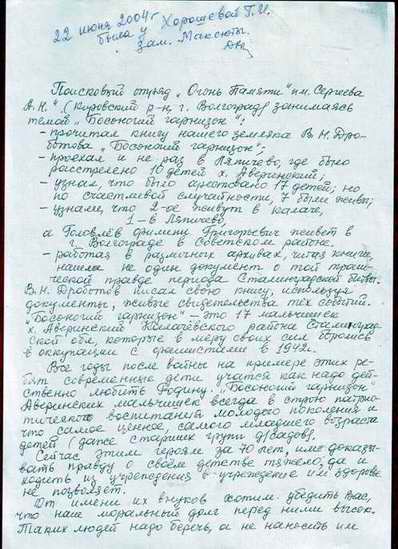 22 июня 2004 г
была у Хорошевой Т.И.
зам. Максюты
Поисковый отряд „Огонь Памяти" им. Сергеева
А.Н." (Кировский р-н, г. Волгоград) занимаясь
темой „Босоногий гарнизон":
- прочитал книгу нашего земляка В.Н. Дро-
ботова „Босоногий гарнизон";
- проехал и не раз в Ляпичево, где было
расстреляно 10 детей х. Аверинский;
- узнал, что было арестовано 17 детей; но
по счастливой случайности, 7 были живы;
- узнали, что 2-ое живут в Калаче,
1 - в Ляпичево,
а Головлёв Филипп Григорьевич живёт в
г. Волгограде в Советском районе.
- работая в различных архивах, читая книги,
нашли не один документ о той траги-
ческой правде периода Сталинградской битвы.
В.Н. Дроботов писал свою книгу, используя
документы, живые свидетельства тех событий.
„Босоногий гарнизон" - это 17 мальчишек
х. Аверинский Калачёвского района Сталинград-
ской обл., которые в меру своих сил боролись
в оккупации с фашистами в 1942.
Все годы после войны на примере этих ре-
бят современные дети учатся как надо дей-
ственно любить Родину. „Босоногий гарнизон"
Аверинских мальчишек всегда в строю патрио-
тического воспитания молодого поколения и
что самое ценное, самого младшего возраста
детей (даже старших групп д/садов).
Сейчас этим героям за 70 лет, им доказы-
вать правду о своём детстве тяжело, да и
ходить из учреждения в учреждение им здоровье
не позволяет.
От имени их внуков хотим убедить Вас,
что наш моральный долг перед ними высок.
Таких людей надо беречь, а не наносить им